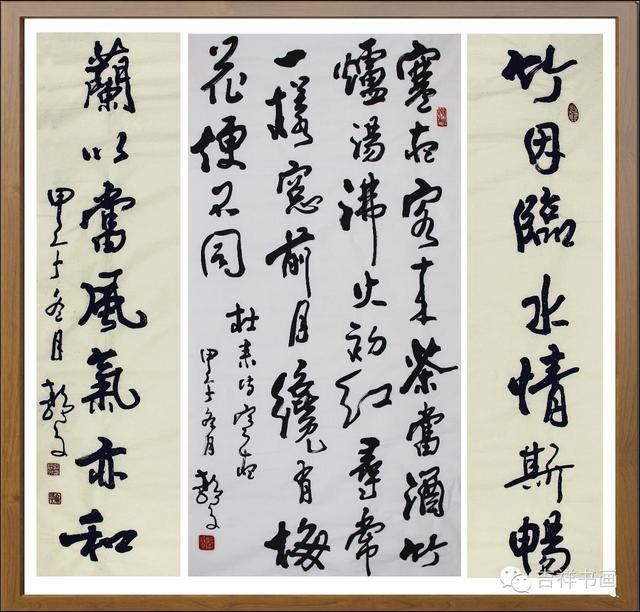 竹因臨水情斯暢
寒夜客来茶當酒竹
爐湯沸火初紅尋常
一樣窓前月纔有梅
花便不同
杜耒詩寒夜
甲午冬月
蘭以當風氣亦和
甲午冬月
吉祥书画